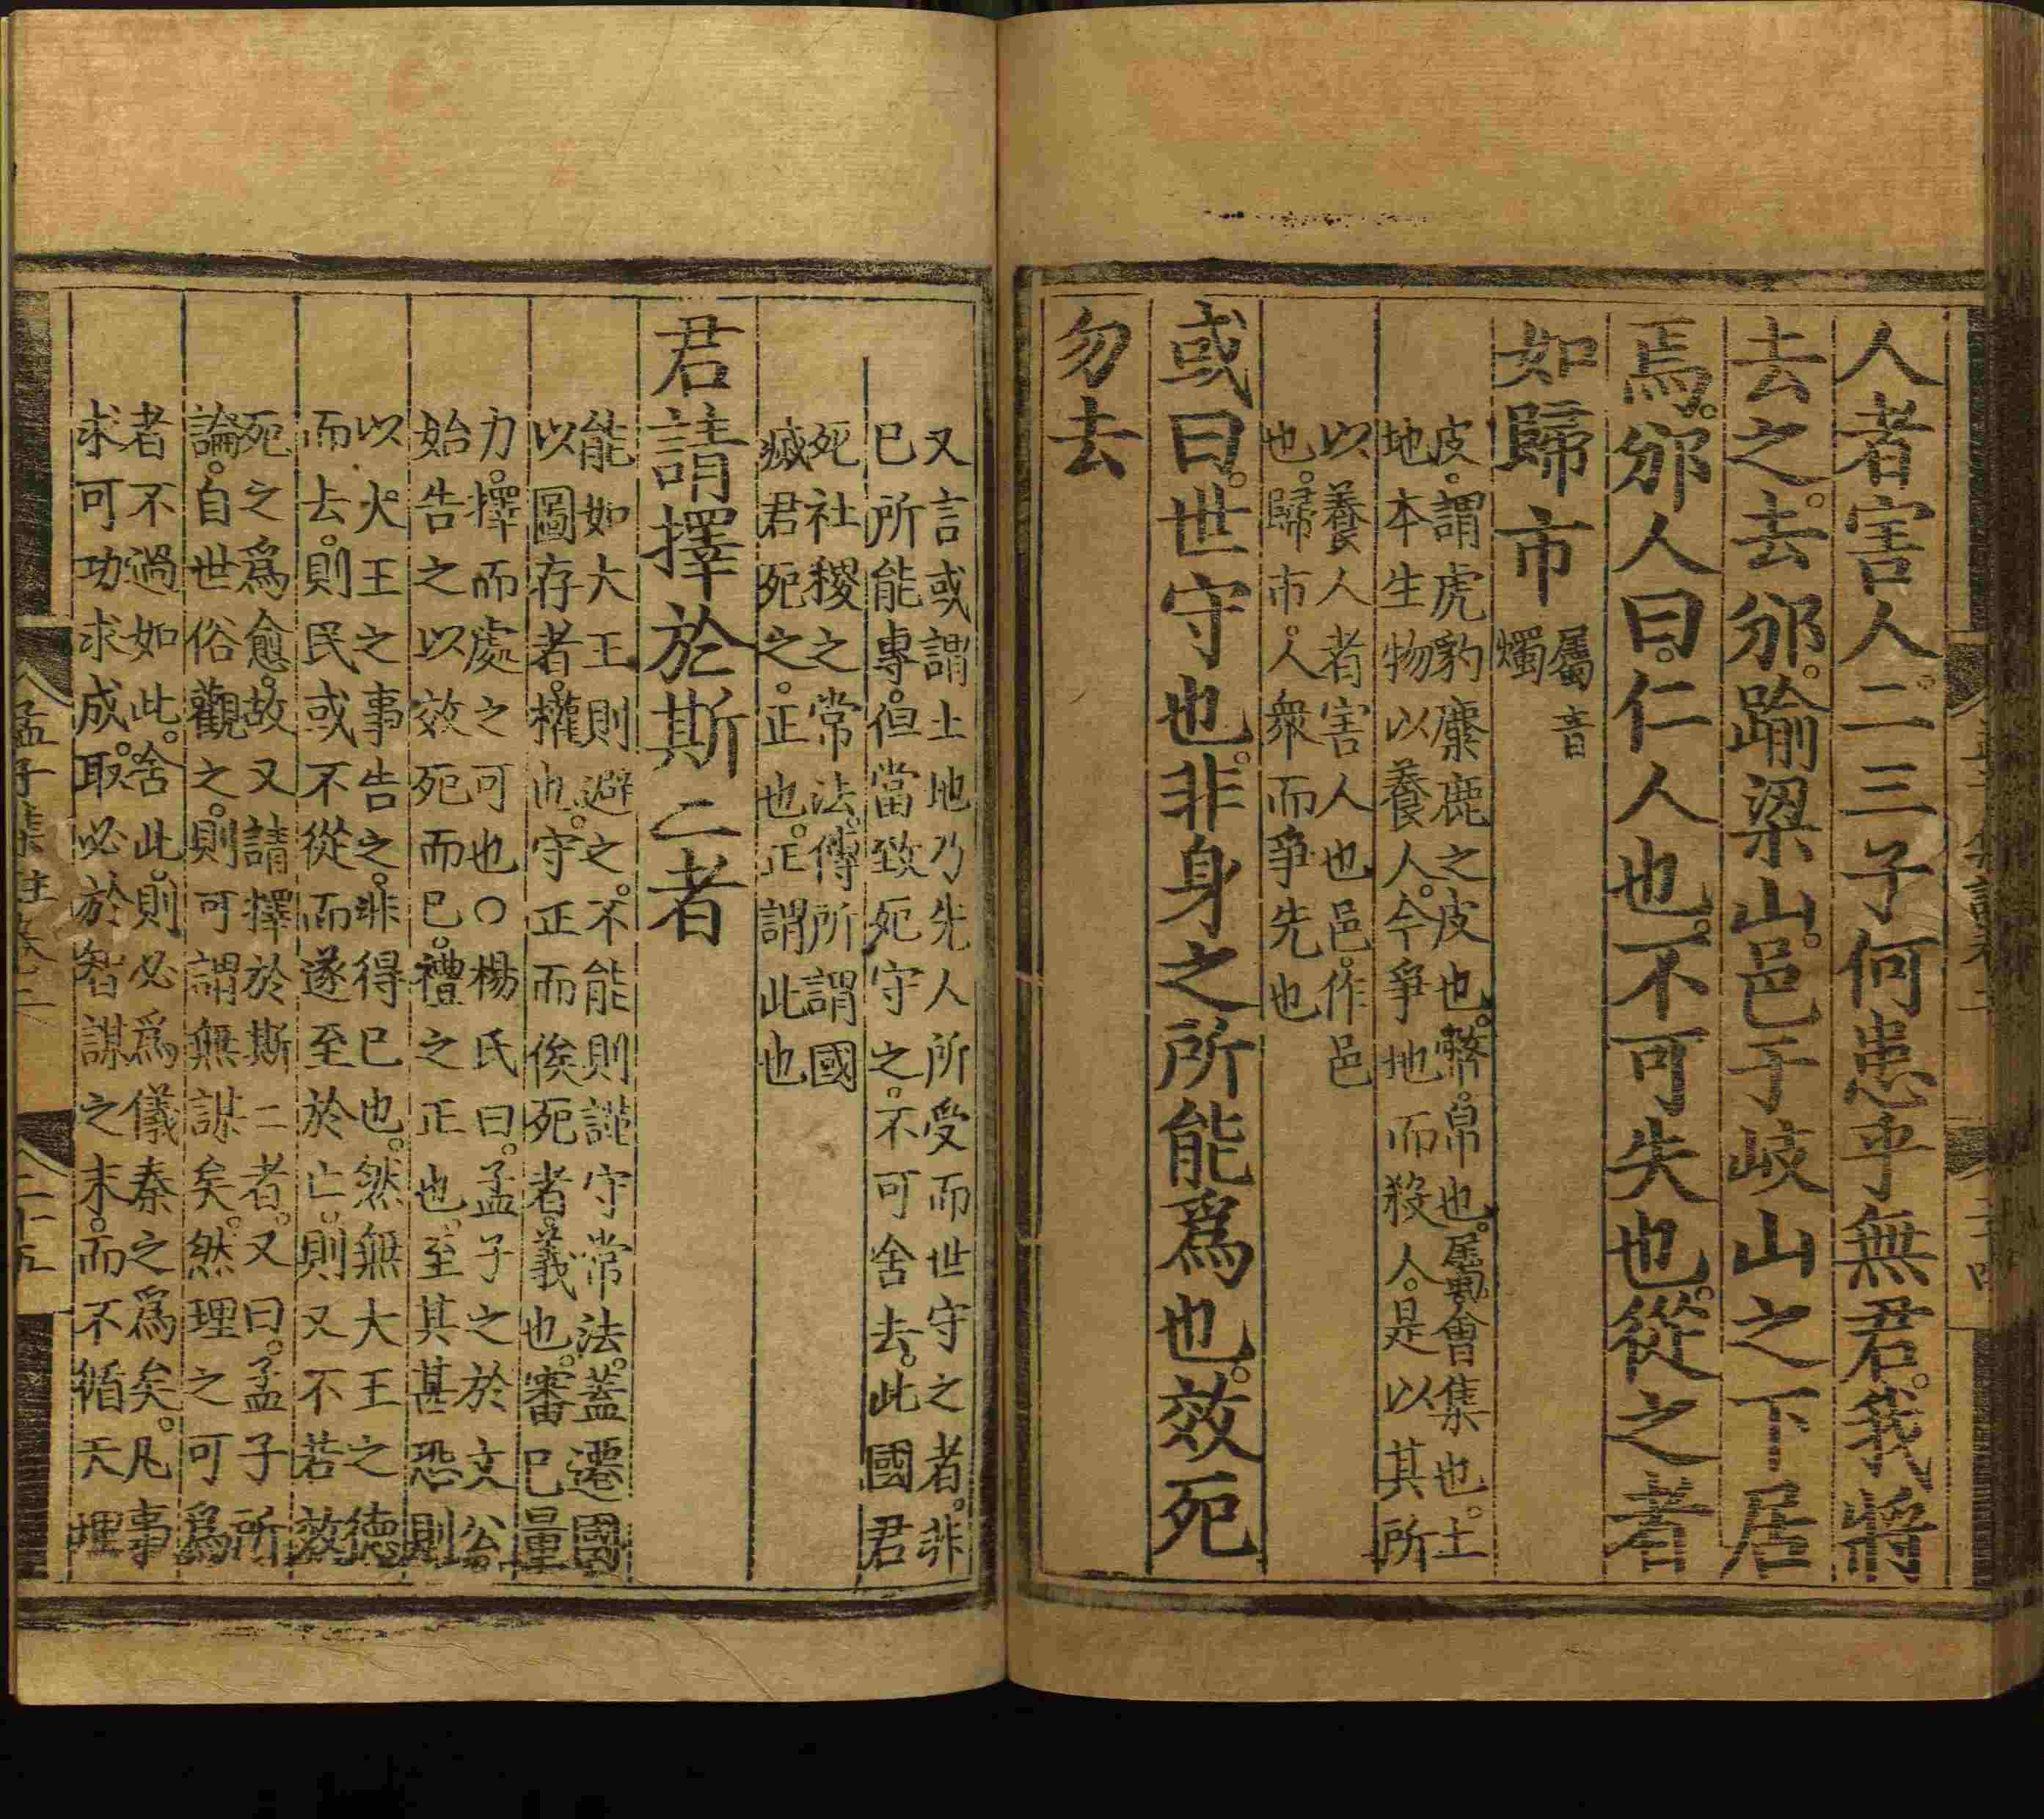 人者害人。二三子何患乎無君。我將
去之。去邠。踰梁山。邑于岐山之下居
焉。邠人曰。仁人也。不可失也。從之者
如歸市
屬音
燭
皮。謂虎豹麋鹿之皮也。幣。帛也。屬。會集也。土
地本生物以養人。今爭地而殺人。是以其所
以養人者害人也。邑。作邑
也。歸市。人衆而爭先也
或曰。世守也。非身之所能爲也。效死
勿去
又言或謂土地乃先人所受而世守之者。非
已所能專。但當致死守之。不可舍去。此國君
死社稷之常法。傳所謂國
滅君死之。正也。正謂此也
君請擇於斯二者
能如大王則避之。不能則謹守常法。蓋遷國
以圖存者。權也。守正而俟死者。義也。審已量
力。擇而處之可也○楊氏曰。孟子之於文公。
始告之以效死而已。禮之正也。至其甚恐。則
以大王之事告之。非得已也。然無大王之德
而去。則民或不從而遂至於亡。則又不若效
死之爲愈。故又請擇於斯二者。又曰。孟子所
論。自世俗觀之。則可謂無謀矣。然理之可爲
者不過如此。舍此。則必爲儀秦之爲矣。凡事
求可功求成。取必於智謀之末。而不循天理
孟子集註卷二
二十五